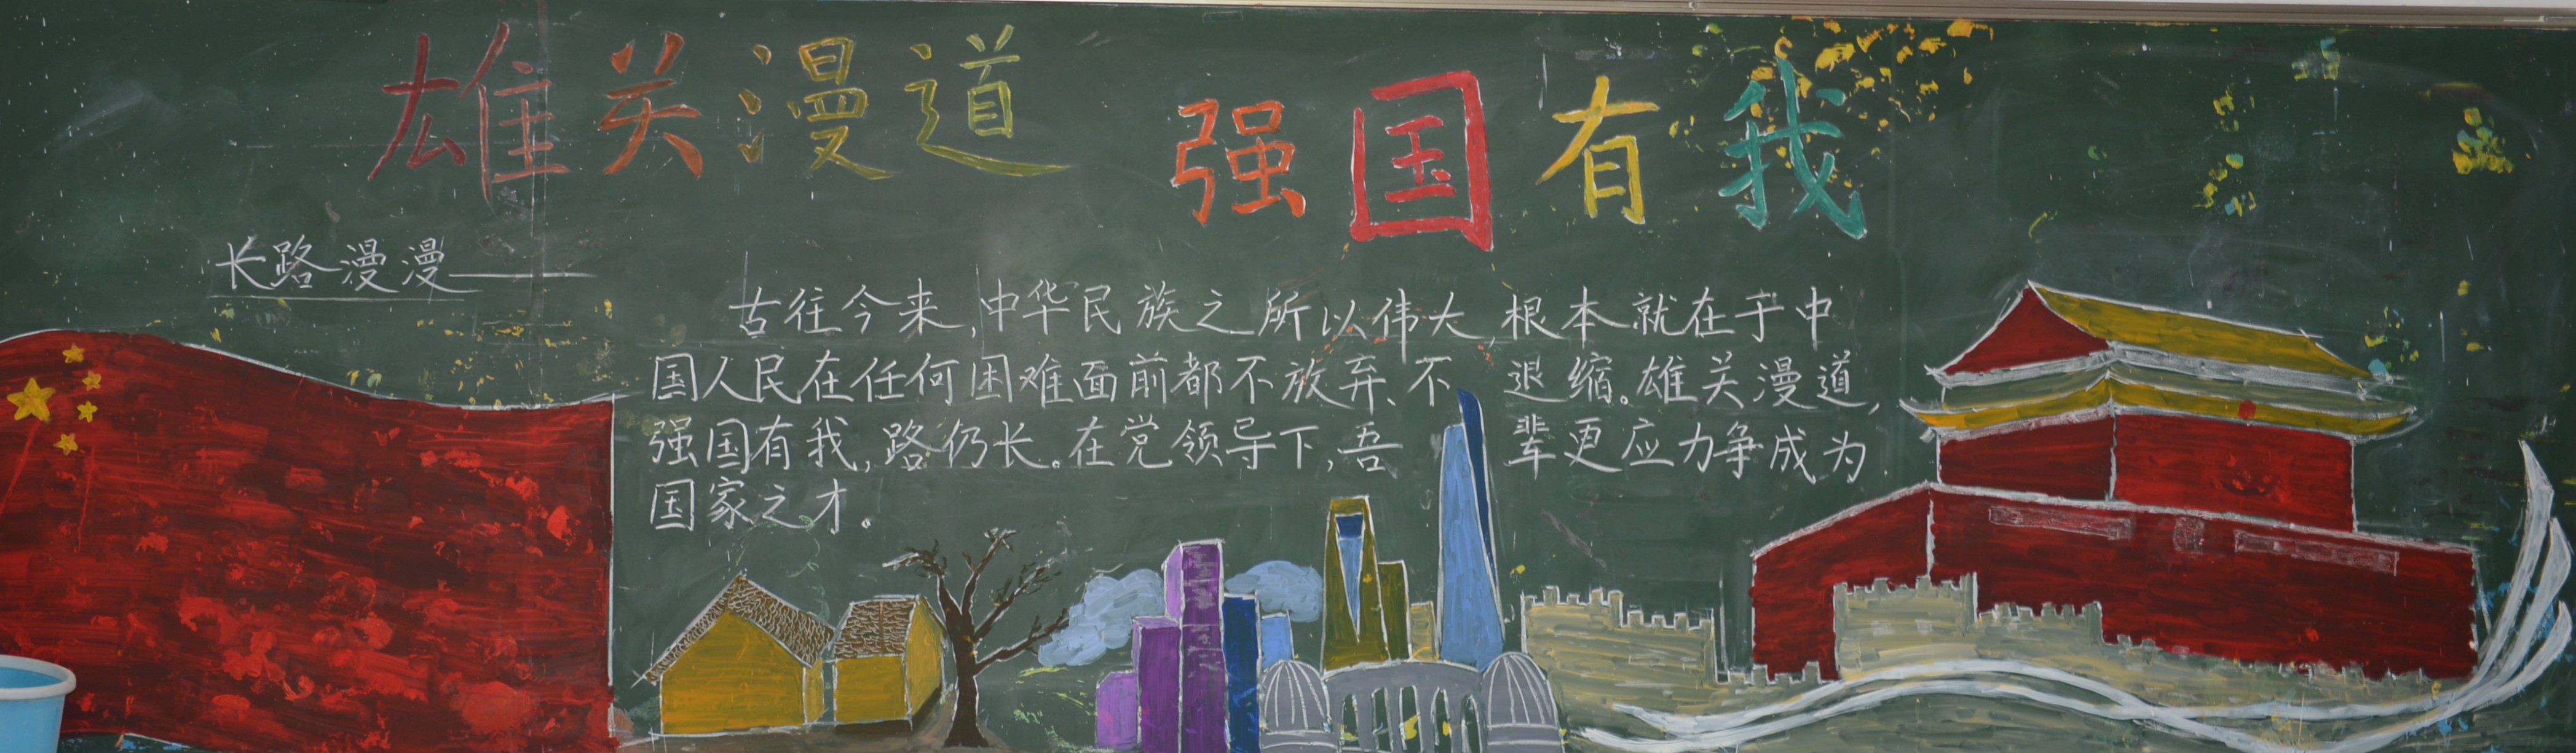 雄关漫道 强国有我
长路漫漫——
古往今来,中华民族之所以伟大,根本就在于中
国人民在任何困难面前都不放弃、不退缩。雄关漫道,
强国有我,路仍长。在党领导下,吾辈更应力争成为
国家之才。